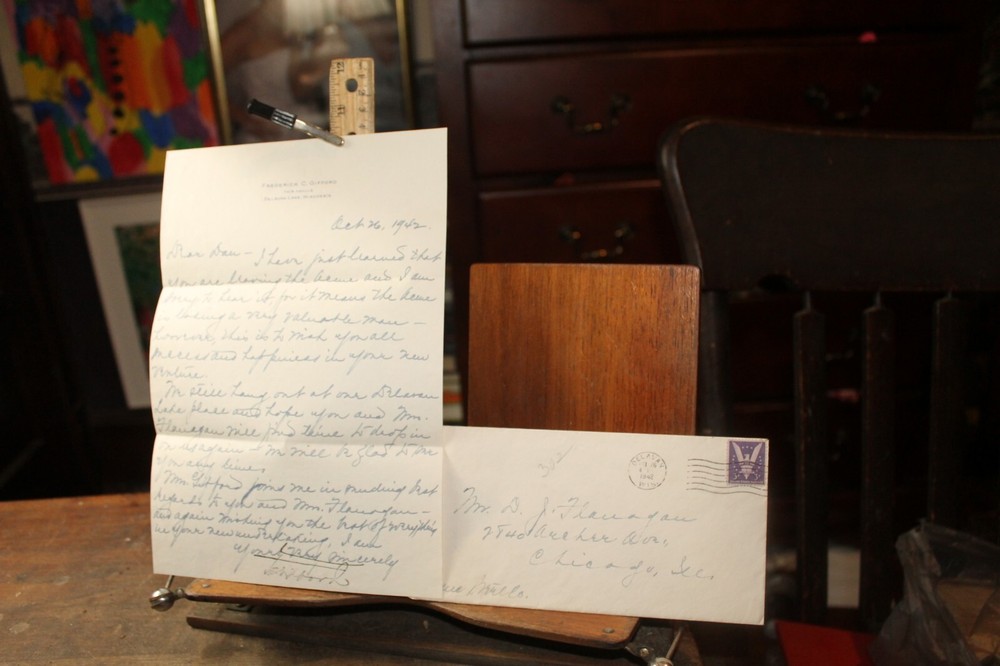 FREDERICK C. GIFFORD
DELAVAN LAKE, WISCONSIN
Oct 26, 1942.
Dear Dan – I have just learned that
you are leaving the Acme and I am
sorry to hear it for it means the Acme
is losing a very valuable man –
however, this is to wish you all
success and happiness in your new
venture.
We still hang out at our Delavan
Lake place and hope you and Mrs.
Flanagan will find time to drop in
on us again – We will be glad to see
you any time.
Mrs. Gifford joins me in sending best
regards to you and Mrs. Flanagan –
and again wishing you the best of everything
in your new undertaking, I am
Yours very sincerely
DELAVAN
1942
WIS.
3¢
Mr. D. J. Flanagan
2840 Archer Ave.,
Chicago, Ill.